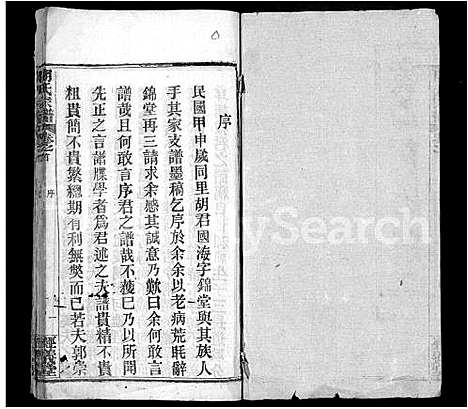 序
民國甲申歲同里胡君國海字錦堂與其族人
手其家支譜墨稿乞序於余余以老病荒耗辭
錦堂再三請求余感其誠意乃歎曰余何敢言
譜哉且何敢言序君之譜哉不獲巳乃以所聞
先正之言譜牒學者爲君述之夫譜貴精不貴
粗貴簡不貴繁總期有利無獘而已若夫郭崇
胡氏宗譜
卷之首
序
經義堂
MySearch